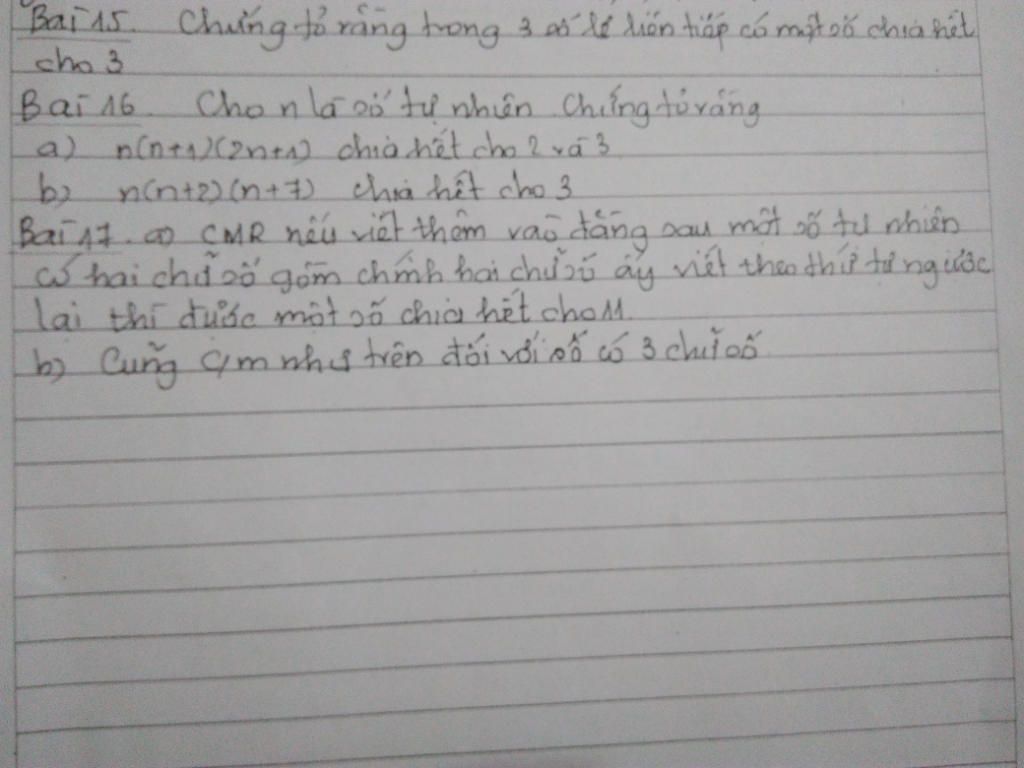 Bài 15. Chứng tỏ rằng trong 3 số lẻ liên tiếp có một số chia hết
cho 3
Bài 16. Cho n là số tự nhiên Chứng tỏ rằng
a) n(n+1)(2n+1) chia hết cho 2 và 3
b) n(n+2)(n+7) chia hết cho 3
Bài 17. a) CMR nếu viết thêm vào đằng sau một số tự nhiên
có hai chữ số gồm chính hai chữ số ấy viết theo thứ tự ngược
lại thì được một số chia hết cho 11.
b) Cũng c/m như trên đối với số có 3 chữ số